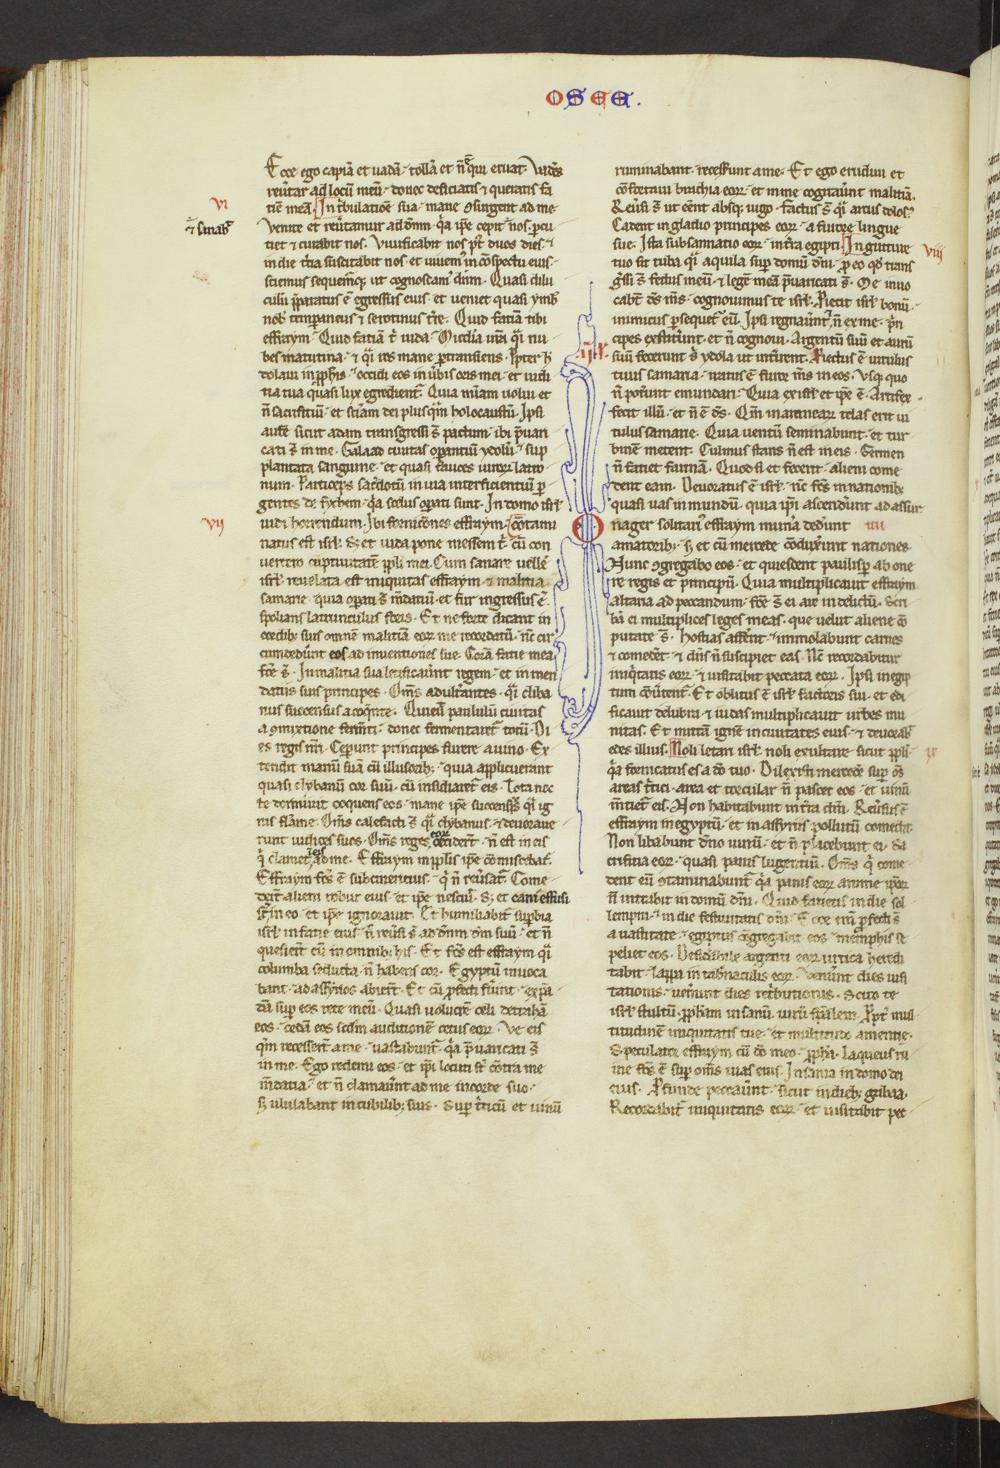 OSEE.
Ecce ego capiã et uadã· tollã et ñ ẽ qui eruat· Uadẽs
reuertar ad locũ meũ· donec deficiatis ⁊ queratis fa
VI
ciẽ meã. In t̾bulatione sua· mane ꝯsurgent ad me·
Venite et reu̾tamur ad dñm· q̃a ip̃e cepit nos· ꝑcu
tiet ⁊ curabit nos. Viuificabit nos p̾t duos dies· ⁊
in die t̾tia suscitabit nos· et uiuem̾ in ꝯspectu eius·
sciemus sequemurq̾ ut cognoscam̾ dñm· Quasi dilu
culũ p̃paratus ẽ egressus eius· et ueniet quasi ymb̾
nob̾ temporaneus ⁊ serotinus t̾re· Quid faciã tibi
effraym· Quid faciã t̾ iuda· Mĩa ur̃a q̃i nu
bes matutina· ⁊ q̃i ros mane ꝑtransiens· Propter h̾
dolaui in ꝓphis· occidi eos in u̾bis oris mei· et iudi
tia tua quasi lux egredient̾· Quia mĩam uolui et
ñ sacrificiũ· et sciam̃ dei plusq̃m holocaustũ· Ipsi
autẽ sicut adam transgressi s̃ pactum· ibi p̾uari
cati s̃ in me· Galaad ciuitas operantiũ ydolũ· sup
plantata sanguine· et quasi fauces uiror̃ latro
num· Particeps sac̾dotũ in uia interficientiũ ꝑ
gentes de sychem· q̃a scelus oꝑati sunt· In domo isrł
VII
uidi horrendum· Ibi fornicõnes effraym· cõtami
natus est isrł· s; et iuda pone messem t̾· cũ con
uertero captiuitatẽ ppłi mei· Cum sanare uellẽ
isrł· reuelata est iniquitas effraym· ⁊ malitia
samarie· quia oꝑati s̃ mẽdatiũ· et fur ingressus ẽ·
spolians latrunculus foris· Et ne forte dicant in
cordib; suis omnẽ malitiã eor̃ me recordatũ· nũc cir
cumdedũnt eos ad inuentiones sue· Corã facie mea
fc̃e s̃· In malitia sua letificauer̃t regem· et in men
datiis suis principes· Om̃s adult̾antes· q̃i cliba
nus succensus a coq̃nte· Quieuit paululũ ciuitas
a ꝯmixtione ferm̃ti· donec fermentaret̾ totũ· Di
es regis nr̃i· Ceperunt principes furere a uino· Ex
tendit manũ suã cũ illusorib;· quia applicuerunt
quasi clybanũ cor suũ· cũ insidiaret̾ eis· Tota noc
te dormiuit coquens eos· mane ip̃e succensus q̃i ig
nis flãme· Om̃s calefacti s̃ q̃i clybanus· ⁊ deuoraue
runt iudices suos· Om̃s reges eor̃ cecider̃t· ñ est in eis
q̃ clamet ad me· Effraym in ppłis ip̃e cõmiscebat̾·
Effraym fc̃s ẽ subcinericius· q̃ ñ reu̾sat̾· Come
der̃t alieni robur eius· et ip̃e nesciuit· s; et cani effusi
s̃t in eo· et ip̃e ignorauit· Et humiliabit̾ supbia
isrł in facie eius· ñ reu̾si s̃ ad dñm dm̃ suũ· et ñ
quesier̃t eũ in omnib; his· Et fc̃s est effraym q̃i
columba seducta· ñ habens cor· Egyptũ inuoca
bant· ad assyrios abier̃t· Et cũ ꝓfecti fũint· expã
dã sup eos rete meũ· Quasi uolucrẽ celi detrahã
eos· cedã eos scđm auditionẽ cetus eor̃· Ve eis
qm̃ recesser̃t a me· uastabunt̾· q̃a p̾uaricati s̃
in me· Ego redemi eos· et ip̃i locuti s̃t cõtra me
mẽdatia· et ñ clamauer̃t ad me in corde suo·
s; ululabant in cubilib; suis· Sup t̾ticũ et uinũ
ruminabant· recesserunt a me· Et ego erudiui et
cõfortaui brachia eor̃· et in me cogitauer̃t malitiã·
Reu̾si s̃ ut eent absq; iugo· facti s̃ q̃i arcus dolos̾·
Cadent in gladio principes eor̃· a furore lingue
VIII
sue· Ista subsannatio eor̃· in t̾ra egipti· In gutture
tuo sit tuba q̃i aquila sup domũ dñi· p̾ eo qđ trans
gressi s̃ fedus meũ· ⁊ legẽ meã p̾uaricati s̃· Me inuo
cabũt ds̃ ms̃· cognouimus te isrł· Proiecit isrł bonũ·
inimicus ꝑsequet̾ eũ· Ipsi regnauer̃t ⁊ ñ ex me· p̾n
cipes extiterunt· et ñ cognoui· Argentũ suũ et aurũ
suũ fecerunt s̾ ydola ut int̾irent· Proiectus ẽ uitulus
tuus samaria· iratus ẽ furor ms̃ in eos· Vsq; quo
ñ poter̃nt emundari· Quia ex isrł et ip̃e ẽ· Artifex
fecit illũ· et ñ ẽ ds̃· Qm̃ in aranear̃ telas erit ui
tulus samarie· Quia uentũ seminabunt· et tur
binẽ metent· Culmus stans ñ est in eis· Germen
ñ faciet farinã· Quod si et fecerit· alieni come
dent eam· Deuoratus ẽ isrł· nũc fc̃s in nationib;
quasi uas inmundũ· quia ip̃i ascenderunt ad assur·
Onager solitari̾ effraym munera dederunt
amatorib;· s; et cũ mercede cõduxerint nationes·
Nunc ꝯgregabo eos· et quiescent paulisꝑ ab one
re regis et principũ· Quia multiplicauit effraym
altaria ad peccandum· fc̃e s̃ ei are in delictũ· Scri
bã ei multiplices leges meas· que uelut aliene cõ
putate s̃· hostias affer̃t· immolabunt carnes
⁊ comedẽt· ⁊ dñs ñ suscipiet eas· Nũc recordabitur
iniq̃tatis eor̃· ⁊ uisitabit peccata eor̃· Ipsi in egip
tum cõu̾tent̾· Et oblitus ẽ isrł factoris sui· et edi
ficauit delubra· ⁊ iudas multiplicauit urbes mu
nitas· Et mittã ignẽ in ciuitates eius· ⁊ deuorab̾
IX
edes illius· Noli letari isrł· noli exultare sicut ppłi·
q̃a fornicatus es a dõ tuo· Dilexisti mercedẽ sup om̃s
areas t̾tici· area et torcular ñ pascet eos· et uinũ
mẽtiet̾ eis· Non habitabunt in t̾ra dñi· Reu̾sus ẽ
effraym in egyptũ· et in assyriis pollutũ comedit·
Non libabunt dño uinũ· et ñ placebunt ei· Sa
crificia eor̃· quasi panis lugentiũ· Om̃s q̃ come
dent eũ ꝯtaminabunt̾· q̃a panis eor̃ anime ip̃or̃
ñ intrabit in domũ dñi· Quid facietis in die sol
lempni· in die festiuitatis dñi· Ecce eni̾ ꝓfecti s̃
a uastitate· egiptus ꝯgregabit eos· memphis se
peliet eos· Desiderabile argenti eor̃ urtica heredi
tabit· lappa in tab̾naculis eor̃· Venerũnt dies uisi
tationis· uenerũnt dies ret̾butionis· Scito te
isrł stultũ· ꝓpham insanũ· uirũ spualem· Propt̾ mul
titudinẽ iniquitatis tue· et multitudo amentie·
Speculator effraym cũ dõ meo· ꝓpha· laqueus ru
ine fc̃s ẽ sup om̃s uias eius· Insania in domo dei
eius· Profunde peccauer̃t· sicut in dieb; gabaa·
Recordabit̾ iniquitatis eor̃· et uisitabit pec